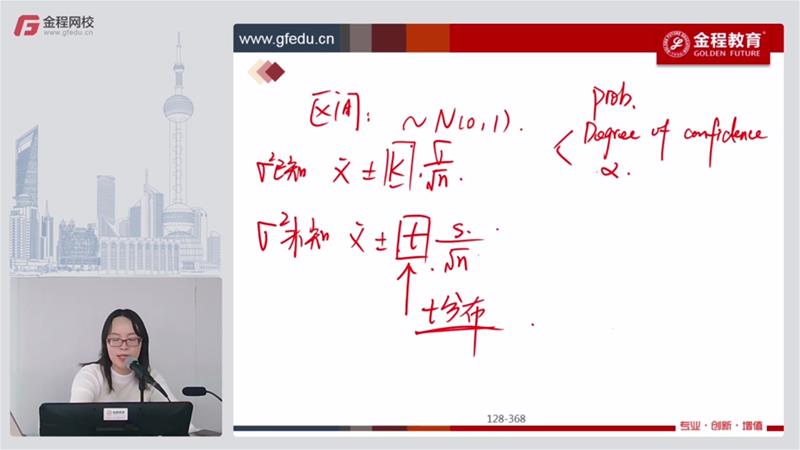 金程网校
www.gfedu.cn
www.gfedu.cn
金程教育
GOLDEN FUTURE
区间: ~N(0,1).
prob.
Degree of confidence
α.
σ²已知 x̄ ± K · σ/√n.
σ²未知 x̄ ± t · s/√n
t分布
金程教育
128-368
专业·创新·增值